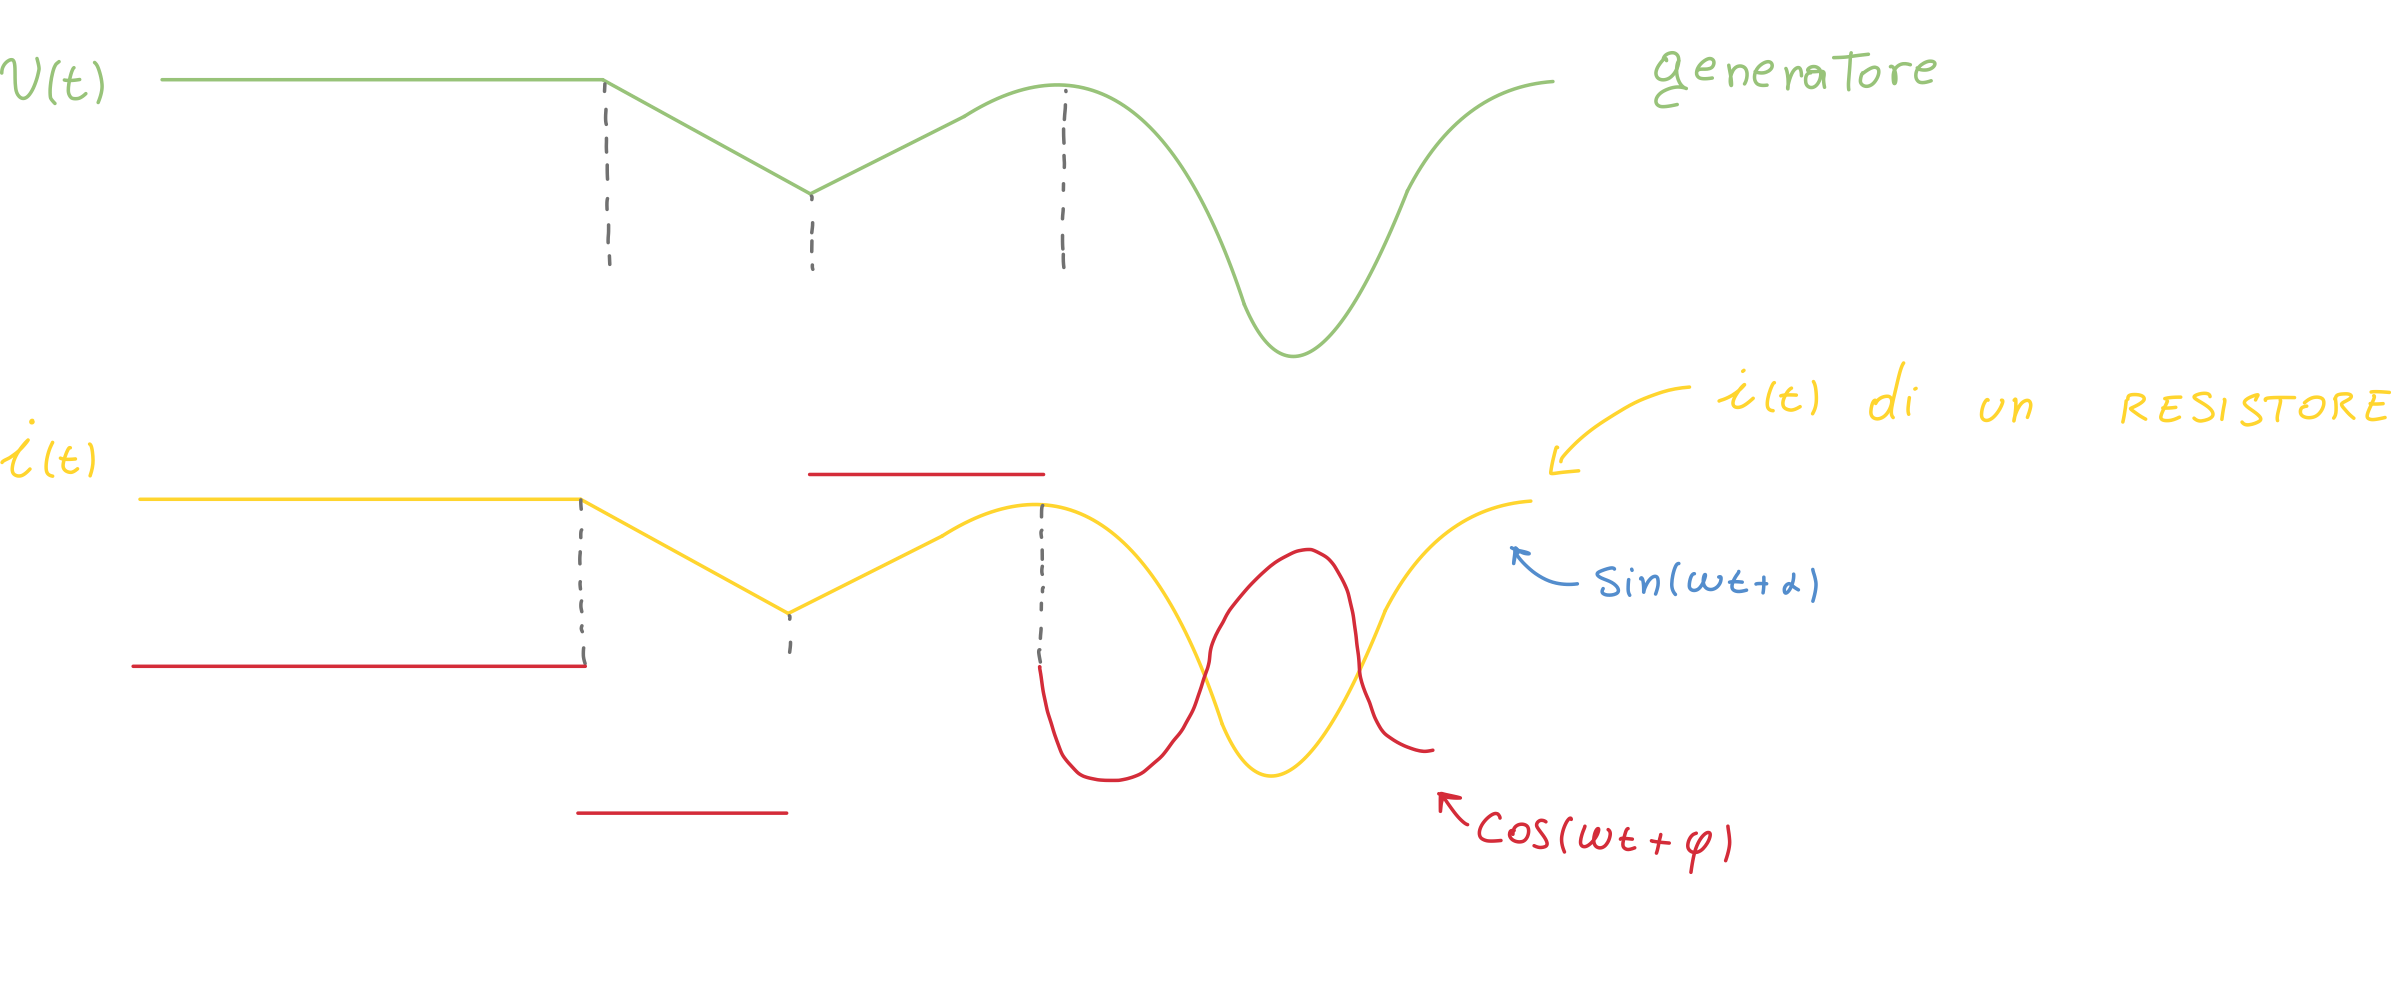 V(t)
generatore
i(t) di un RESISTORE
i(t)
sin(ωt+α)
cos(ωt+φ)